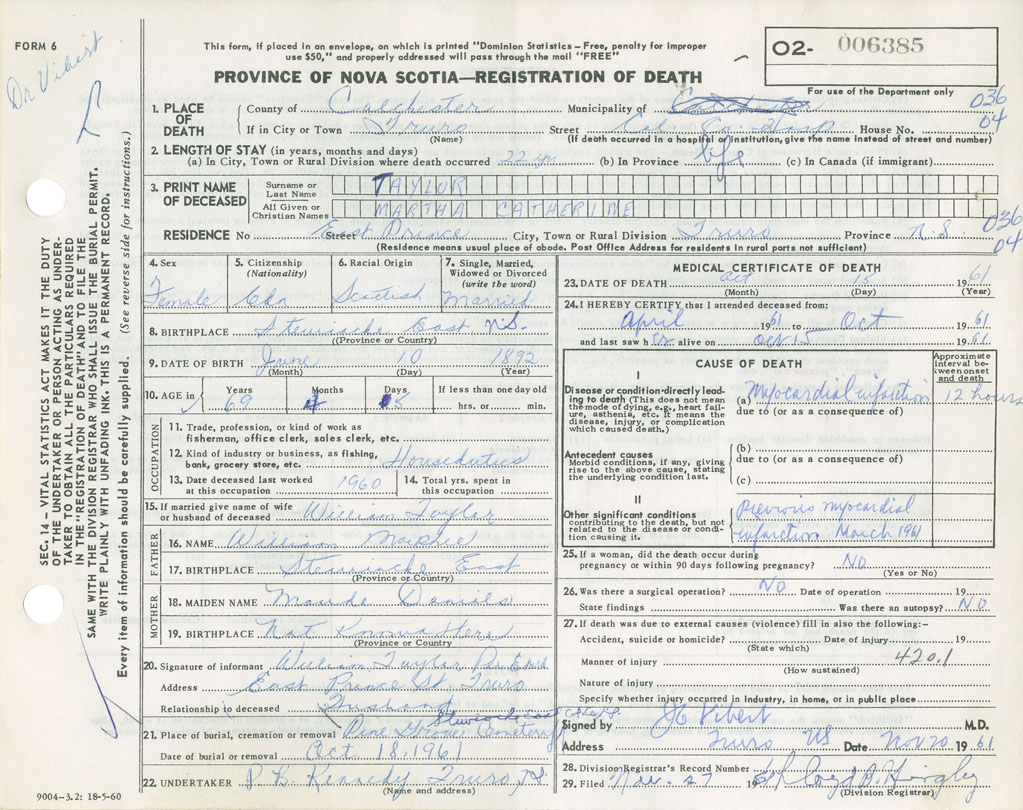 FORM 6
Dr Vibert
This form, if placed in an envelope, on which is printed "Dominion Statistics – Free, penalty for improper
use $50," and properly addressed will pass through the mail "FREE"
PROVINCE OF NOVA SCOTIA—REGISTRATION OF DEATH
O2- 006385
For use of the Department only
036
04
1. PLACE OF DEATH
County of Colchester Municipality of
If in City or Town Truro Street Col. Co. Hosp House No.
(Name) (If death occurred in a hospital or institution, give the name instead of street and number)
2. LENGTH OF STAY (in years, months and days)
(a) In City, Town or Rural Division where death occurred 22 yrs. (b) In Province life (c) In Canada (if immigrant)
3. PRINT NAME OF DECEASED
Surname or Last Name TAYLOR
All Given or Christian Names MARTHA CATHERINE
RESIDENCE No Street East Prince City, Town or Rural Division Truro Province N.S.
(Residence means usual place of abode. Post Office Address for residents in rural parts not sufficient)
036
04
4. Sex
Female
5. Citizenship
(Nationality)
Cdn
6. Racial Origin
Scottish
7. Single, Married, Widowed or Divorced
(write the word)
Married
8. BIRTHPLACE Stewiacke East N.S.
(Province or Country)
9. DATE OF BIRTH June 10 1892
(Month) (Day) (Year)
10. AGE in
Years Months Days If less than one day old
69 4 5 hrs. or min.
OCCUPATION
11. Trade, profession, or kind of work as
fisherman, office clerk, sales clerk, etc.
12. Kind of industry or business, as fishing,
bank, grocery store, etc. Houseduties
13. Date deceased last worked
at this occupation 1960
14. Total yrs. spent in
this occupation
15. If married give name of wife
or husband of deceased William Taylor
FATHER
16. NAME William
17. BIRTHPLACE Stewiacke East
(Province or Country)
MOTHER
18. MAIDEN NAME Maude Daniels
19. BIRTHPLACE Not Known
(Province or Country)
20. Signature of informant William Taylor Per
Address East Prince St Truro
Relationship to deceased Husband
21. Place of burial, cremation or removal Pine Grove Cemetery Stewiacke East
Date of burial or removal Oct 18. 1961
22. UNDERTAKER Kennedy Truro, N.S.
(Name and address)
9004-3.2: 18-5-60
MEDICAL CERTIFICATE OF DEATH
23. DATE OF DEATH Oct 15 1961
(Month) (Day) (Year)
24. I HEREBY CERTIFY that I attended deceased from:
April 1961 to Oct 1961
and last saw her alive on Oct 15 1961
CAUSE OF DEATH
Approximate interval between onset and death
I
Disease or condition directly leading to death (This does not mean
the mode of dying, e.g., heart failure, asthenia, etc. It means the
disease, injury, or complication
which caused death.)
(a) Myocardial infarction 12 hours
due to (or as a consequence of)
Antecedent causes
Morbid conditions, if any, giving
rise to the above cause, stating
the underlying condition last.
(b)
due to (or as a consequence of)
(c)
II
Other significant conditions
contributing to the death, but not
related to the disease or condition causing it.
Previous myocardial
infarction March 1961
25. If a woman, did the death occur during
pregnancy or within 90 days following pregnancy? NO
(Yes or No)
26. Was there a surgical operation? NO Date of operation 19
State findings Was there an autopsy? NO
27. If death was due to external causes (violence) fill in also the following:-
Accident, suicide or homicide? Date of injury 19
(State which)
Manner of injury 420.1
(How sustained)
Nature of injury
Specify whether injury occurred in industry, in home, or in public place
Signed by Vibert M.D.
Address Truro NS Date Nov 20 1961
28. Division Registrar's Record Number
29. Filed Nov. 27 1961
(Division Registrar)
SEC. 14 – VITAL STATISTICS ACT MAKES IT THE DUTY
OF THE UNDERTAKER OR PERSON ACTING AS UNDER-
TAKER TO OBTAIN ALL THE PARTICULARS REQUIRED
IN THE "REGISTRATION OF DEATH" AND TO FILE THE
SAME WITH THE DIVISION REGISTRAR WHO SHALL ISSUE THE BURIAL PERMIT.
WRITE PLAINLY WITH UNFADING INK. THIS IS A PERMANENT RECORD.
Every item of information should be carefully supplied. (See reverse side for instructions.)